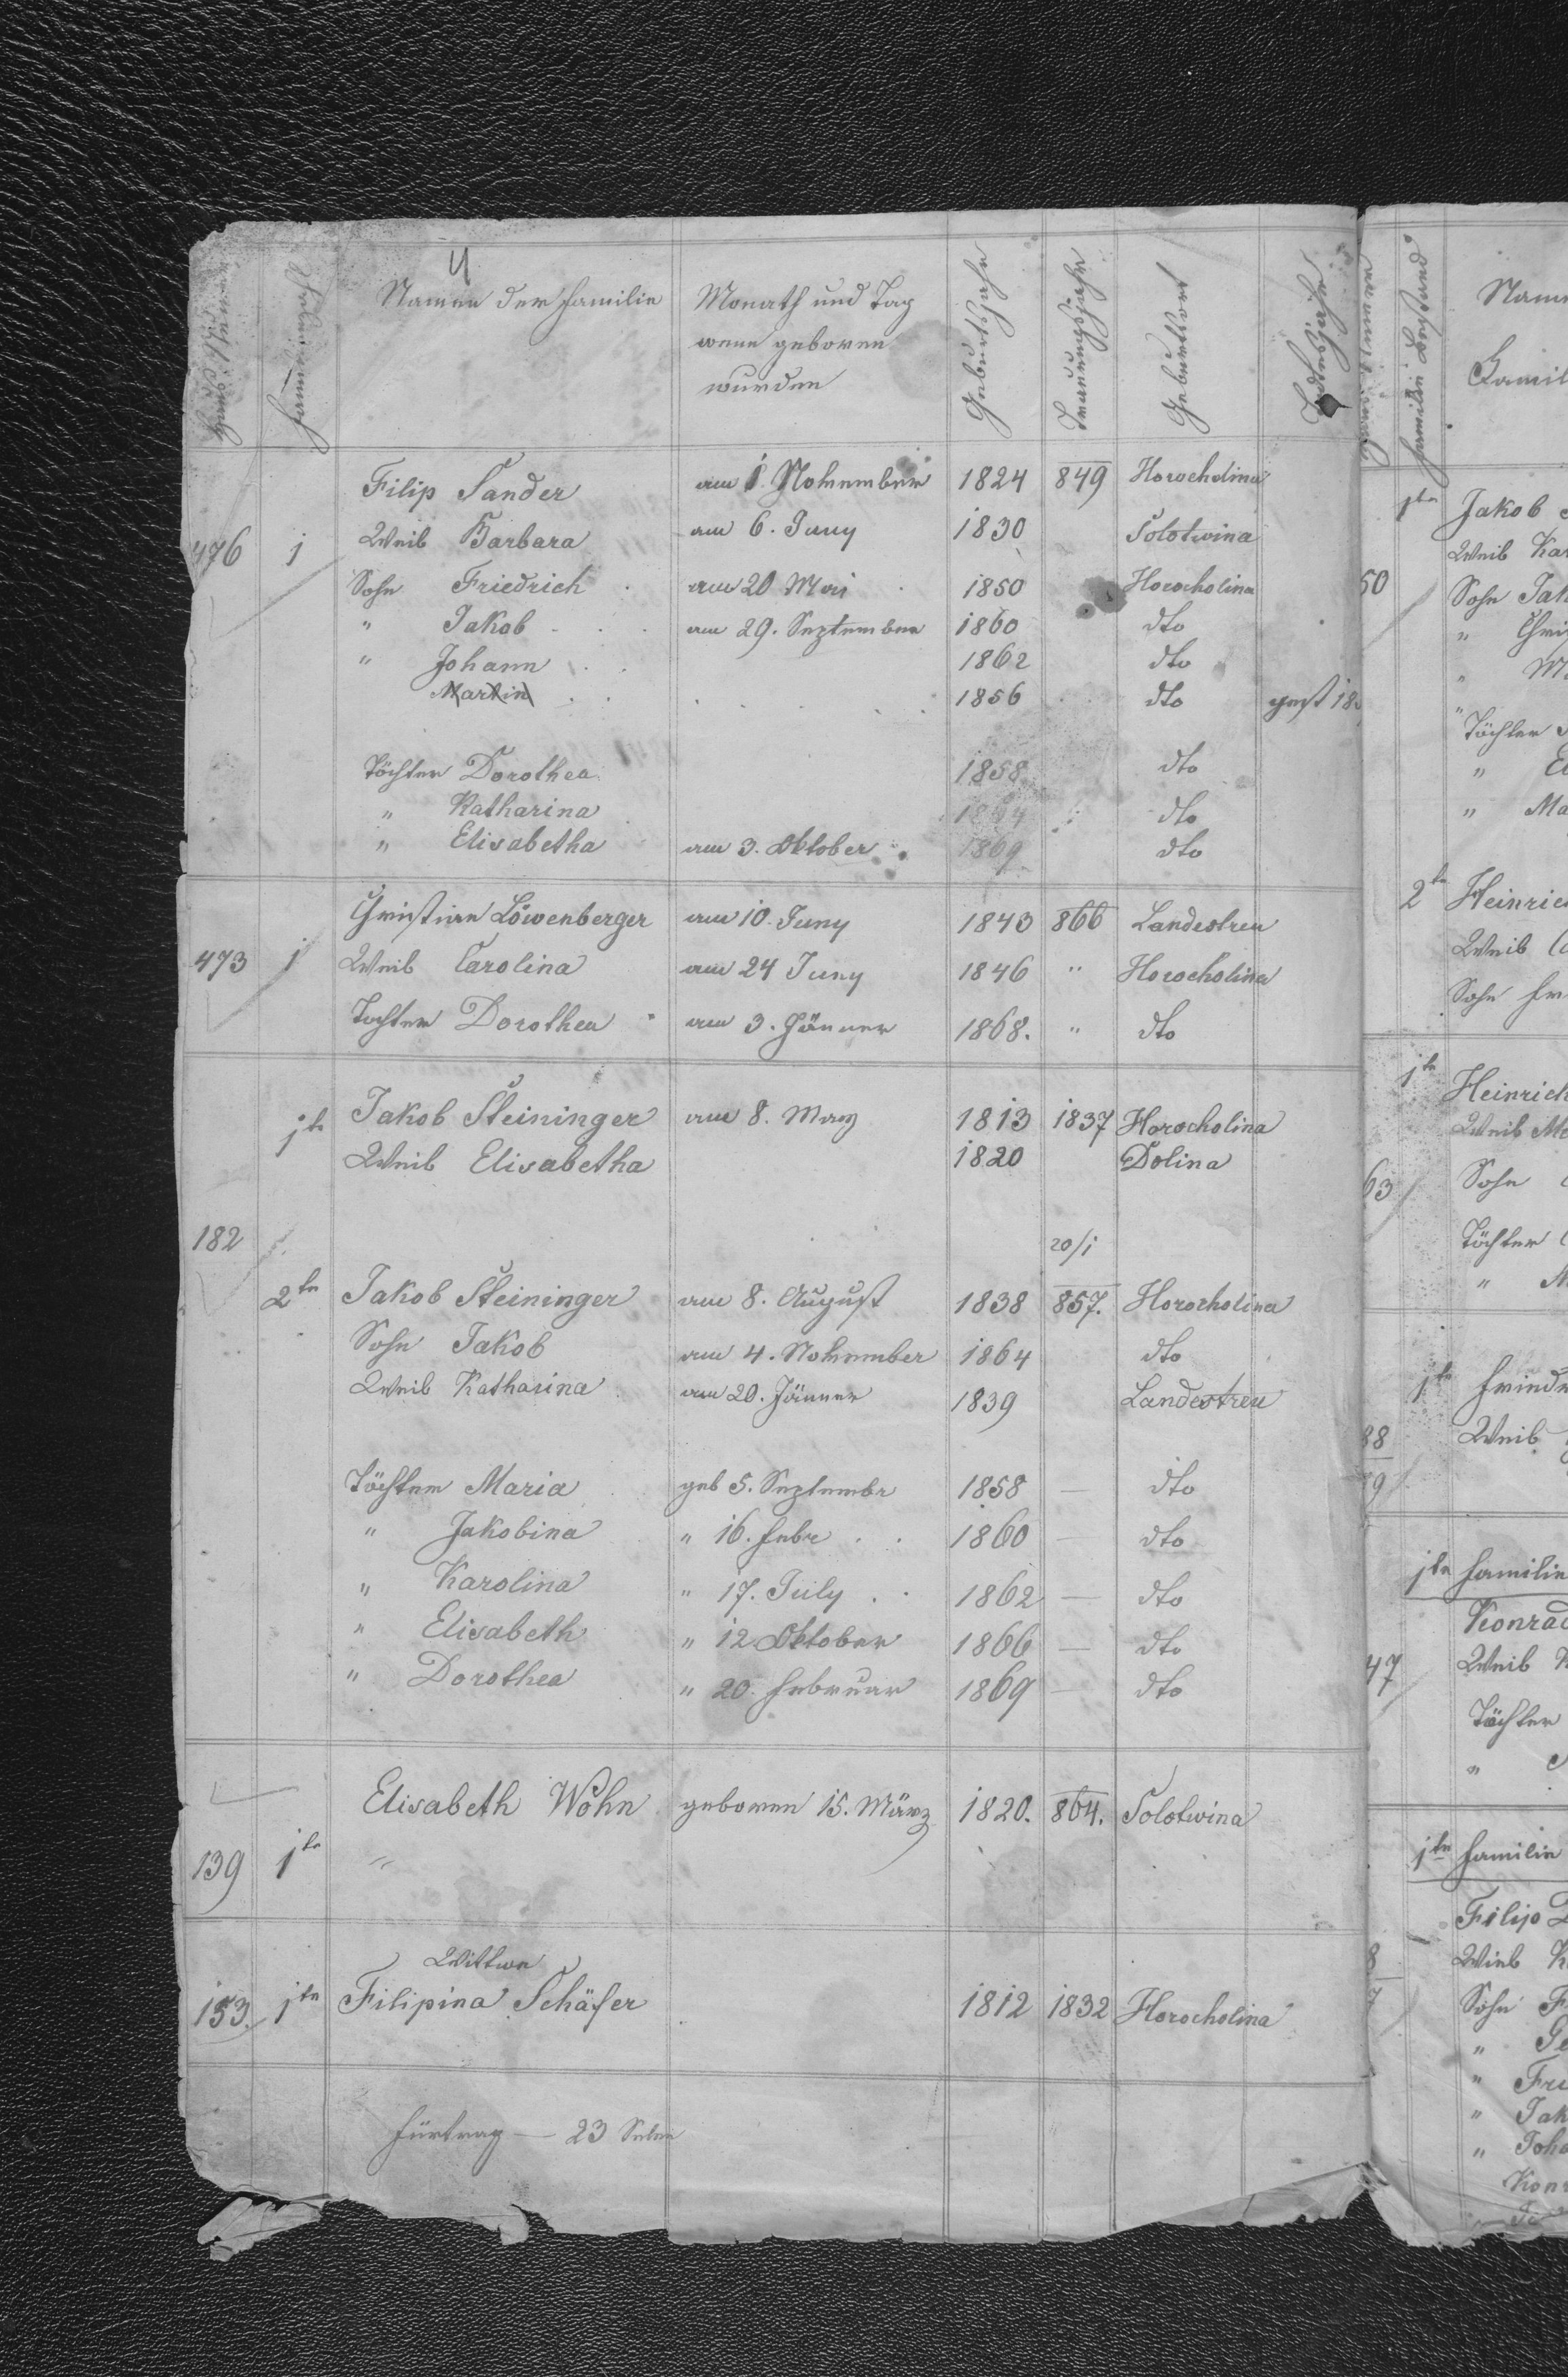 4
Namen der Familie
Monath und Tag
wenn geboren
wurden
Geburtsjahr
Trauungsjahr
Geburtsort
Todesjahr
Filip Sander am 1. November 1824 849 Horocholina
476 1 Weib Barbara am 6. Juny 1830 Solotwina
Sohn Friedrich am 20 Mai 1850 Horocholina
" Jakob am 29. September 1860 dto
" Johann 1862 dto
Martin 1856 dto gest 185
Töchter Dorothea 1858 dto
" Katharina dto
" Elisabetha am 3. Oktober 1869 dto
Christian Löwenberger am 10. Juny 1843 866 Landestreu
473 1 Weib Carolina am 24 Juny 1846 " Horocholina
Tochter Dorothea am 3. Jänner 1868. " dto
1te Jakob Steininger am 8. May 1813 1837 Horocholina
Weib Elisabetha 1820 Dolina
182 20/1
2te Jakob Steininger am 8. August 1838 857. Horocholina
Sohn Jakob am 4. November 1864 dto
Weib Katharina am 20. Jänner 1839 Landestreu
Töchter Maria geb 5. Septembr 1858 — dto
" Jakobina " 16. Febr 1860 — dto
" Karolina " 17. July 1862 — dto
" Elisabeth " 12 Oktober 1866 — dto
" Dorothea " 20. Februar 1869 — dto
Elisabeth Wohn geboren 15. März 1820. 864. Solotwina
139 1te "
Wittwe
153. 1te Filipina Schäfer 1812 1832 Horocholina
Fürtrag — 23 Selen
Familie Bestand
Nam
Famil
1te Jakob
Weib Kar
50 Sohn Jak
" Chri
" Ma
"
Töchter
" El
" Ma
2te Heinric
Weib
Sohn Fr
1te Heinrich
Weib Ma
63 Sohn
Töchter
"
1te Friedr
88 Weib
1te Familie
Konrad
47 Weib
Töchter
"
1te Familie
Filip
8 Weib K
7 Sohn F
" Ge
" Fri
" Jak
" Joha
Konr